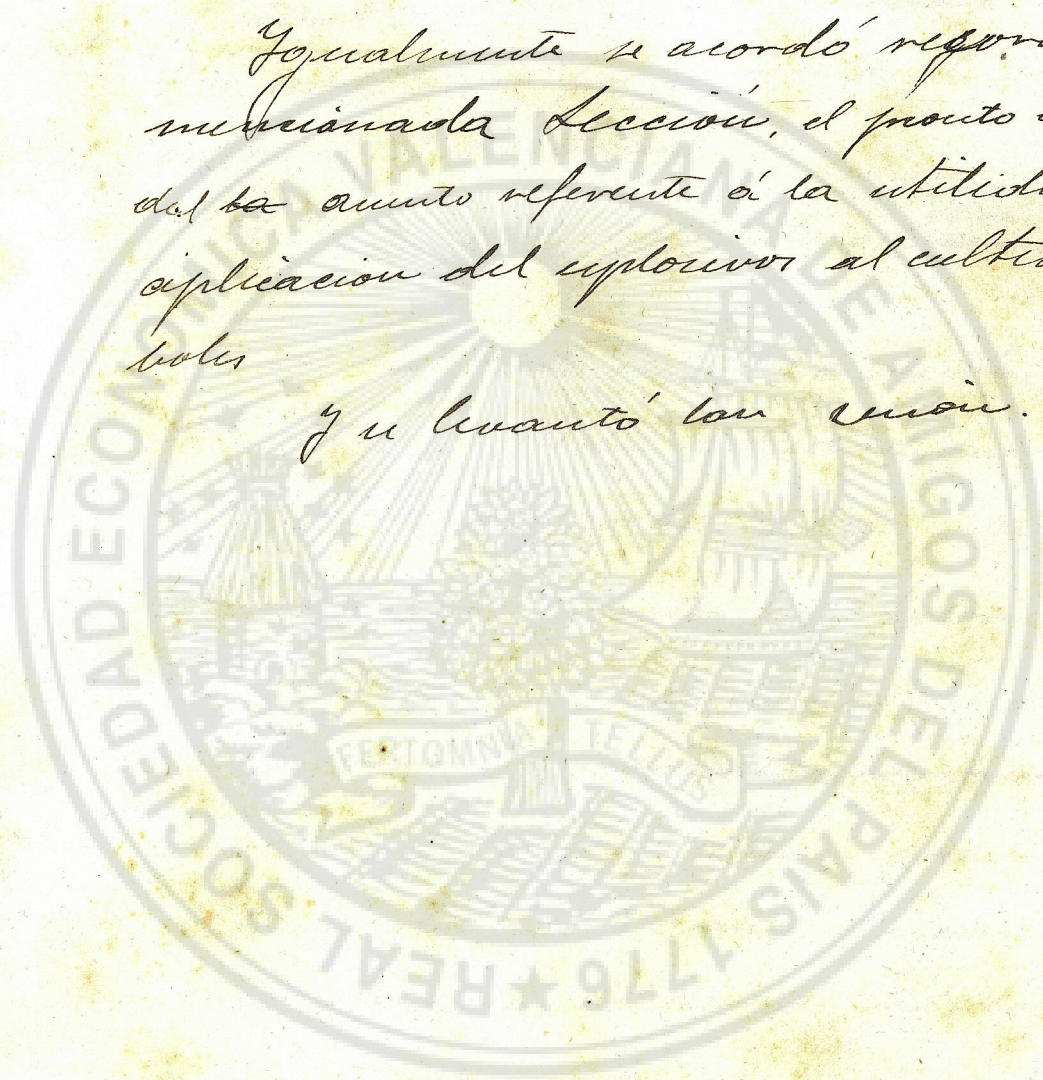 Igualmente se acordó
mencionada Sección, el pronto
del la asunto referente á la utilid
aplicacion del explosivos al cultiv
boles
Y se levantó lan sesión.
REAL SOCIEDAD ECONOMICA VALENCIANA DE AMIGOS DEL PAIS 1776 ★
FERT OMNIA TELLUS